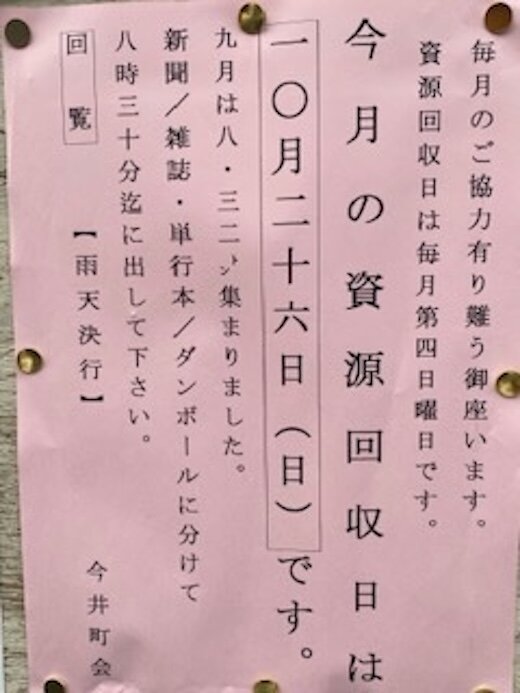 毎月のご協力有り難う御座います。
資源回収日は毎月第四日曜日です。
今月の資源回収日は
一〇月二十六日（日）です。
九月は八・三二㌧集まりました。
新聞／雑誌・単行本／ダンボールに分けて
八時三十分迄に出して下さい。
回覧
【雨天決行】
今井町会